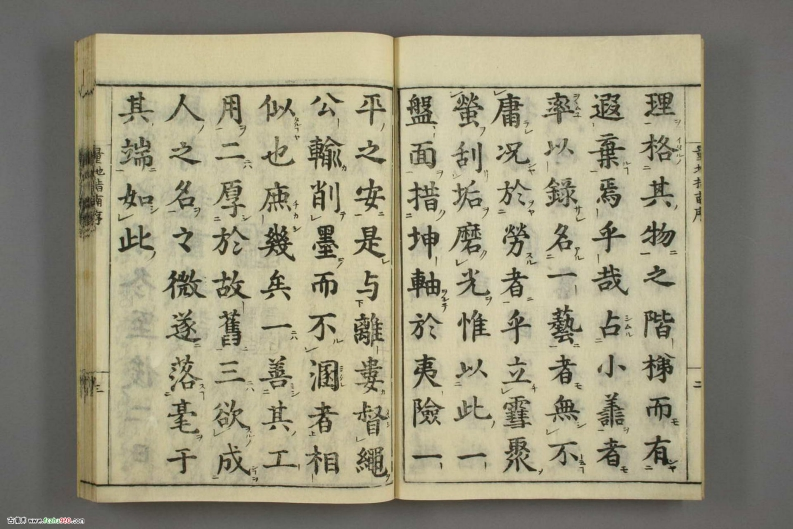 理格其物之階梯而有
遐棄焉乎哉占小善者
率以錄名一藝者無不
庸况於勞者乎立雪聚
螢刮垢磨光惟以此一
盤面措坤軸於夷險一
平之安是与離婁督繩
公輸削墨而不溷者相
似也庶幾矣一善其工
用二厚於故舊三欲成
人之名々微遂落毫于
其端如此
量地指南序
二
量地指南序
三